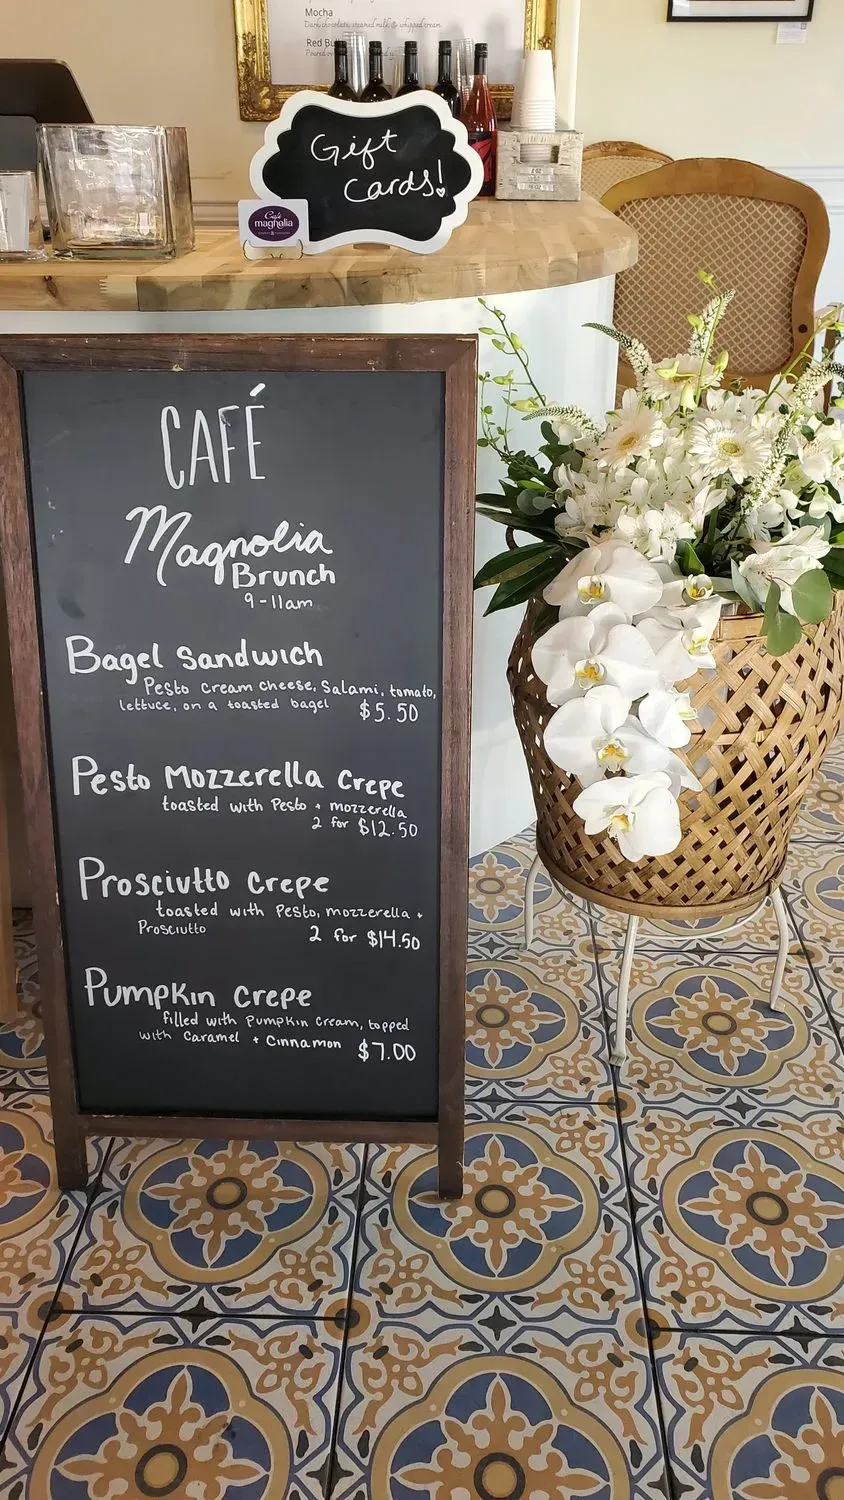 Mocha
Dark chocolate, steamed milk & whipped cream
Red Bull
Poured over
Gift
Cards!
Café
magnolia
CAFÉ
Magnolia
Brunch
9-11am
Bagel Sandwich
Pesto cream cheese, Salami, tomato,
lettuce, on a toasted bagel $5.50
Pesto Mozzerella Crepe
toasted with Pesto + mozzerella
2 for $12.50
Prosciutto Crepe
toasted with Pesto, mozzerella +
Prosciutto 2 for $14.50
Pumpkin Crepe
filled with Pumpkin Cream, topped
with Caramel + Cinnamon $7.00